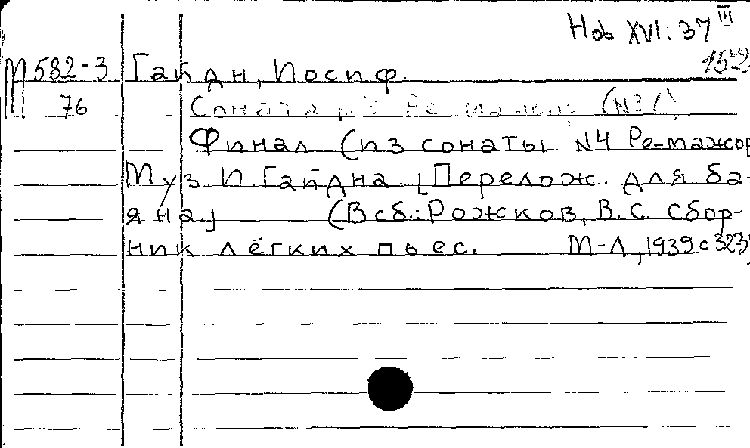 Hob XVI:37 III
М 582-3 Гайдн, Иосиф.
76 Соната Ре мажор
Финал (из сонаты N4 Ре-мажор
Муз. И. Гайдна [Перелож. для ба-
яна] (В сб.: Рожков, В.С. Сбор-
ник лёгких пьес. М-Л, 1939. с 3239